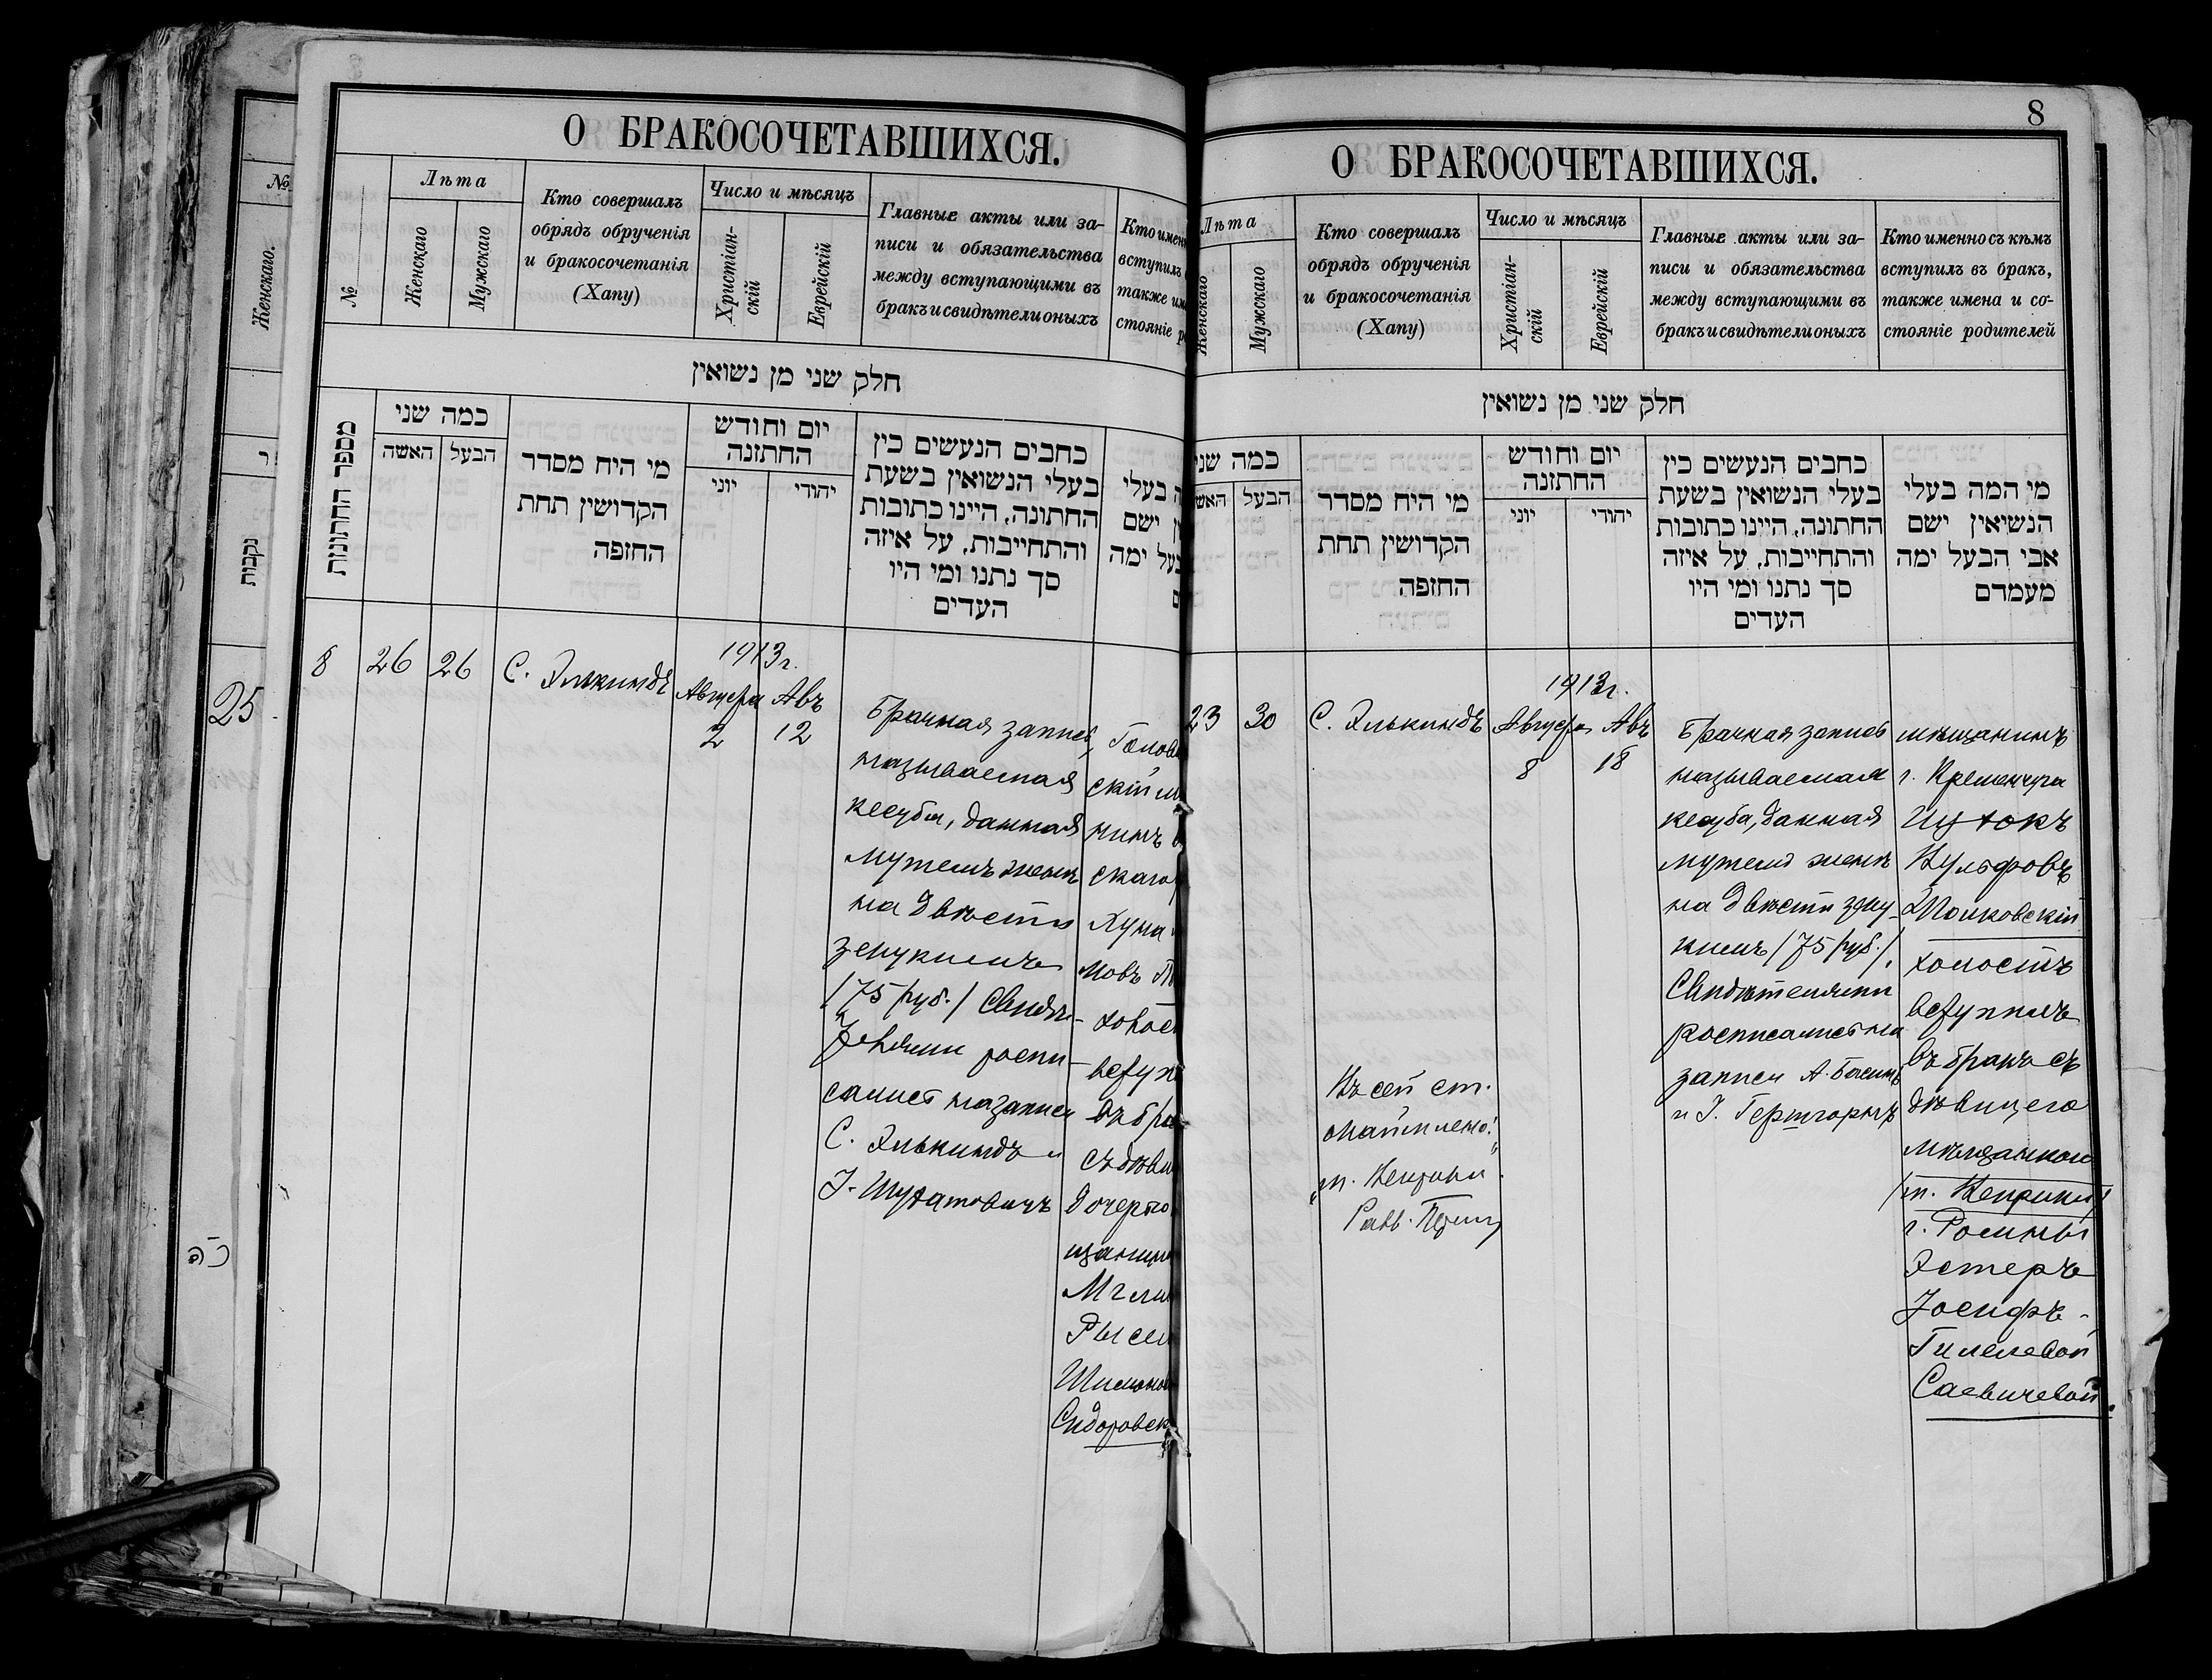 8
О БРАКОСОЧЕТАВШИХСЯ.
№
Женскаго.
נקבות
25
№
Лѣта
Женскаго
Мужскаго
Кто совершалъ
обрядъ обрученія
и бракосочетанія
(Хапу)
Число и мѣсяцъ
Христіан-
скій
Еврейскій
Главные акты или за-
писи и обязательства
между вступающими въ
бракъ и свидѣтели оныхъ
Кто имен
вступилъ
также им
стояніе р
חלק שני מן נשואין
מספר החתונות
כמה שני
האשה
הבעל
מי היח מסדר
הקדושין תחת
החזפה
יום וחודש
החתזנה
יוני
יהודי
כחבים הנעשים כין
בעלי הנשואין בשעת
החתונה, היינו כתובות
והתחייבות, על איזה
סך נתנו ומי היו
העדים
בעלי
ישם
בעל ימה
8
26
26
С. Элькиндъ
1913 г.
Августа
2
Авъ
12
Брачная запись,
называемая
кесуба, данная
мужемъ женѣ
на двѣсти
зепукимъ
/75 руб./ Свидѣ-
телями роспи-
сались на записи
С. Элькиндъ и
І.
Голов
скій м
нинъ
скаго
Хуна
мовъ
холост
вступ
въ бра
съ дѣви
дочерью
щанин
Мгли
Рысе
Шимонов
Сидоровск
8
О БРАКОСОЧЕТАВШИХСЯ.
Лѣта
Женскаго
Мужскаго
Кто совершалъ
обрядъ обрученія
и бракосочетанія
(Хапу)
Число и мѣсяцъ
Христіан-
скій
Еврейскій
Главные акты или за-
писи и обязательства
между вступающими въ
бракъ и свидѣтели оныхъ
Кто именно съ кѣмъ
вступилъ въ бракъ,
также имена и со-
стояніе родителей
חלק שני מן נשואין
כמה שני
האש
הבעל
מי היח מסדר
הקדושין תחת
החזפה
יום וחודש
החתזנה
יוני
יהודי
כחבים הנעשים כין
בעלי הנשואין בשעת
החתונה, היינו כתובות
והתחייבות, על איזה
סך נתנו ומי היו
העדים
מי המה בעלי
הנשיאין ישם
אבי הבעל ימה
מעמדם
23
30
С. Элькиндъ
1913 г.
Августа
8
Авъ
18
Брачная запись
называемая
кесуба, данная
мужемъ женѣ
на двѣсти зепу-
кимъ /75 руб./,
Свидѣтелями
росписались на
записи А.
и І. Герцгорнъ
Въ сей ст.
Равв.
мѣщанинъ
г. Кременчуга
Ицхокъ
Вульфовъ
холостъ
вступилъ
въ бракъ съ
дѣвицею
мѣщанкою
г.
Эстеръ
Іосифъ-
Гилелевой
Саевичевой.